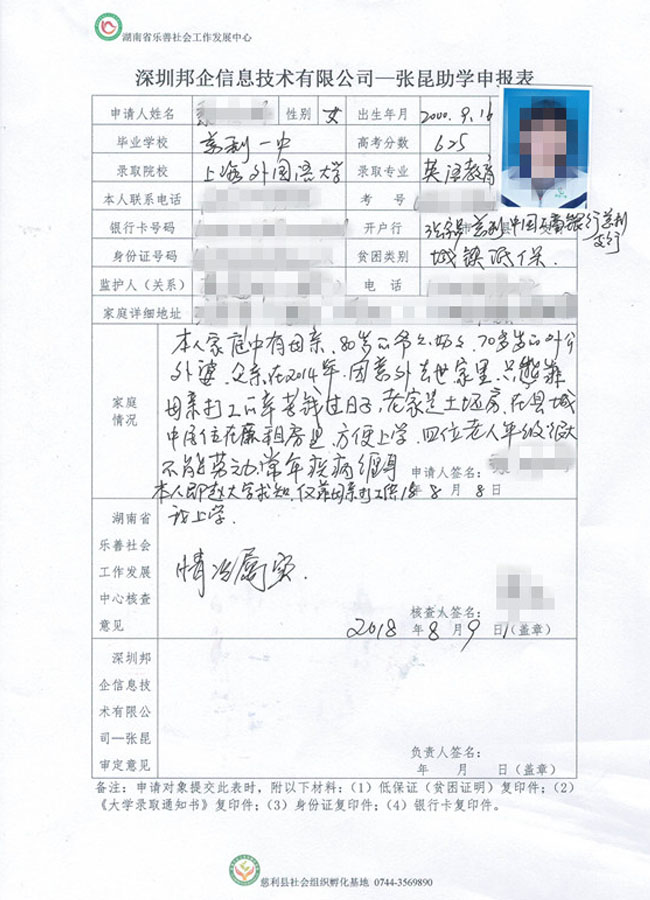 湖南省乐善社会工作发展中心
深圳邦企信息技术有限公司—张昆助学申报表
申请人姓名 性别 女 出生年月 2000.9.16
毕业学校 慈利一中 高考分数 625
录取院校 上海外国语大学 录取专业 英语教育
本人联系电话 考 号
银行卡号码 开户行 张家界市慈利县中国农业银行慈利支行
身份证号码 贫困类别 城镇低保.
监护人（关系） 电 话
家庭详细地址
家庭情况
本人家庭中有母亲、80岁的爷爷奶奶、70岁的外公
外婆.父亲在2014年.因意外去世家里.只能靠
母亲打工的辛苦钱过日子,老家是土墙房.在县城
中居住在廉租房里.方便上学.四位老人年级很大
不能劳动常年疾病缠身
申请人签名：
本人即赴大学求知.仅靠母亲打工供
18年8月8日
我上学.
湖南省乐善社会工作发展中心核查意见
情况属实.
核查人签名：
2018年8月9日（盖章）
深圳邦企信息技术有限公司—张昆审定意见
负责人签名：
年 月 日（盖章）
备注：申请对象提交此表时，附以下材料：（1）低保证（贫困证明）复印件；（2）
《大学录取通知书》复印件；（3）身份证复印件；（4）银行卡复印件。
慈利县社会组织孵化基地 0744-3569890